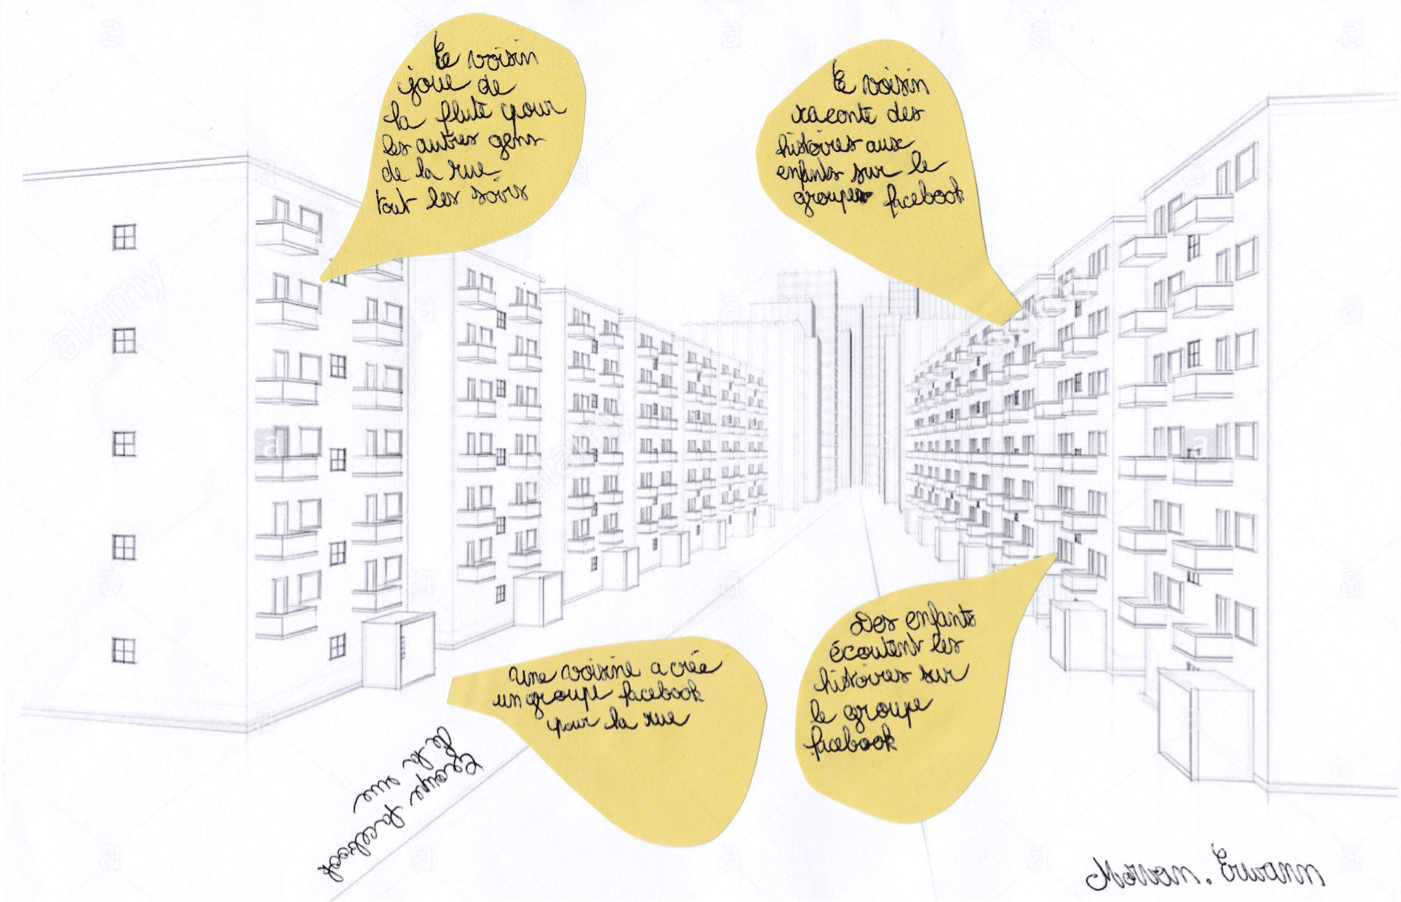 Le voisin
joue de
la flute pour
les autres gens
de la rue
tout les soirs
Le voisin
raconte des
histoires aux
enfants sur le
groupe facebook
Une voisine a crée
un groupe facebook
pour la rue
Des enfants
écoutent les
histoires sur
le groupe
facebook
Groupe facebook
de la rue
Morvan. Erwann
alamy